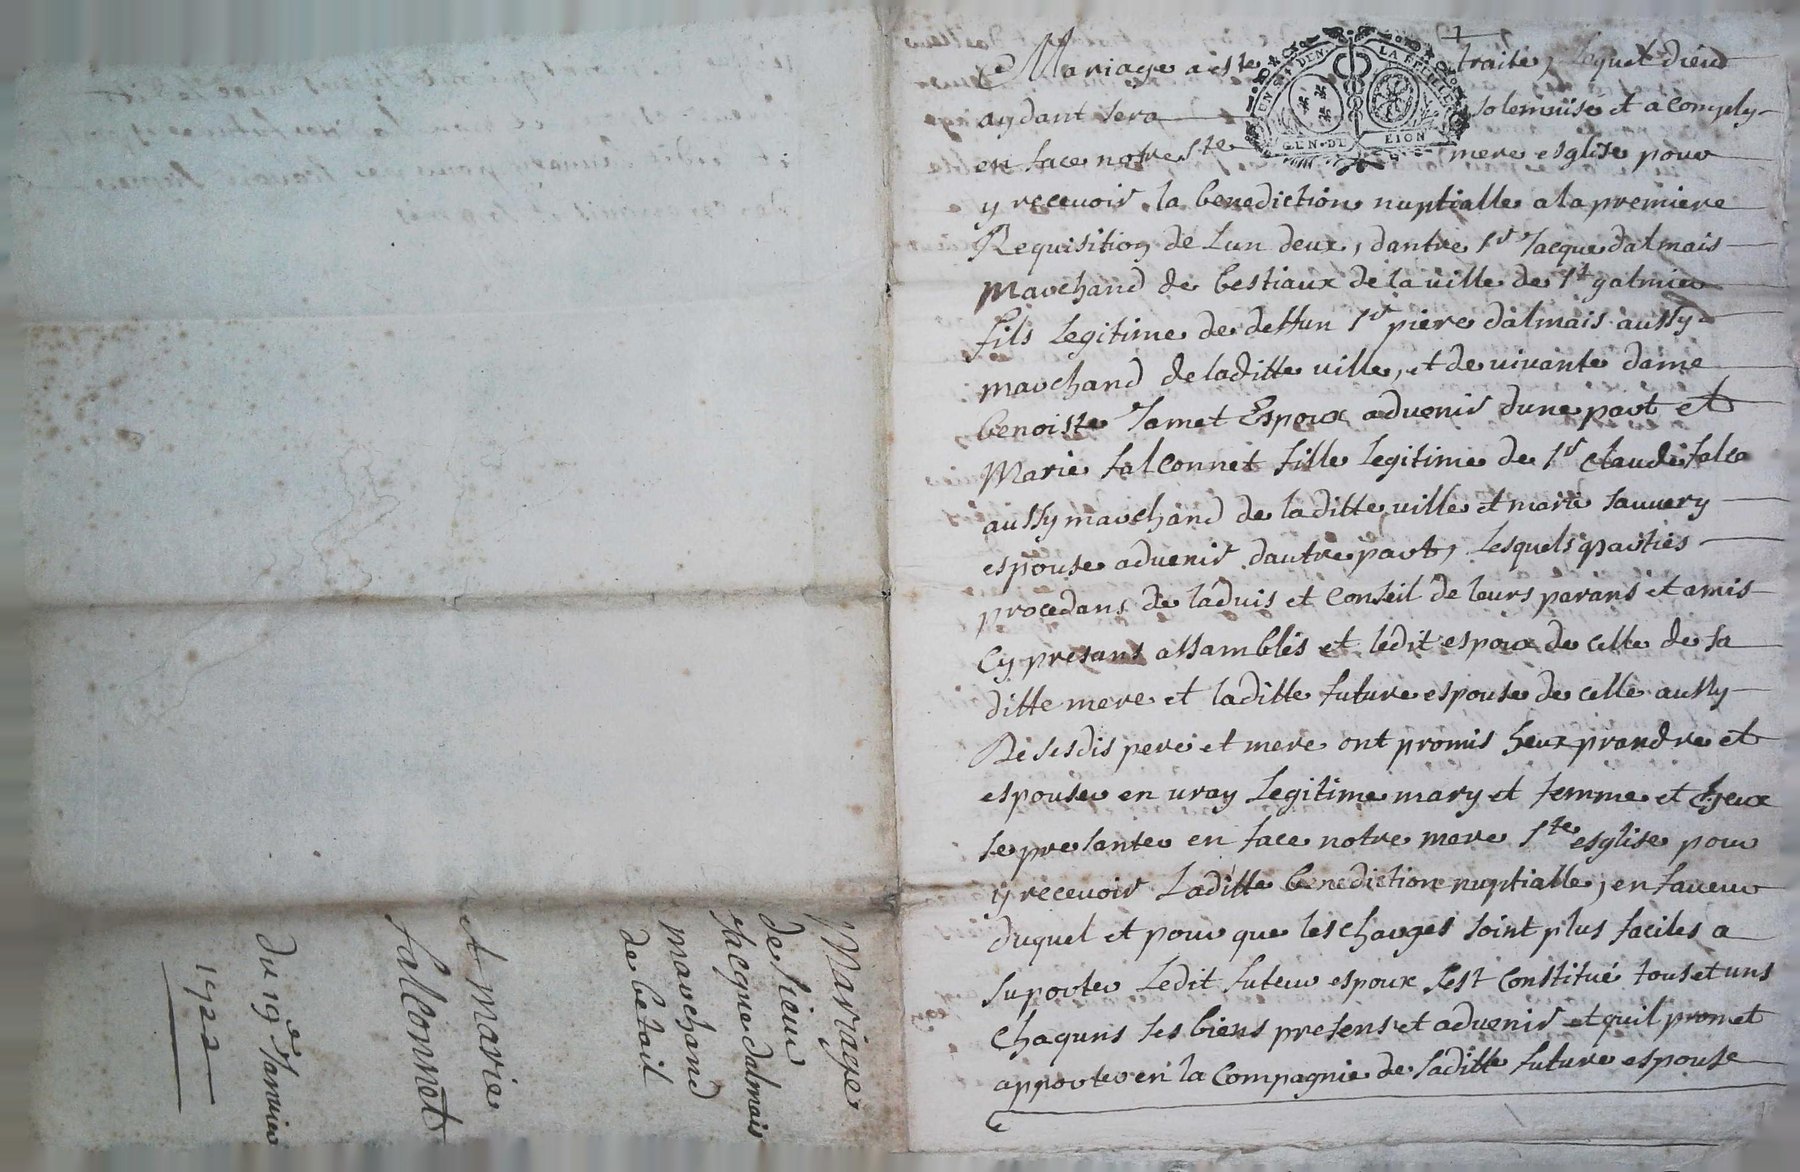 Mariage a este traité, Lequel dieu
aydant sera solemnise et acomply
en face notre Ste mere esglise pour
y recevoir la benediction nuptialle a la premiere
Requisition de Lun deux, dantre Sr Jacque dalmais
Marchand de bestiaux de la ville de St galmier
fils Legitime de deffun Sr piere dalmais aussy
marchand de laditte ville, et de vivante dame
benoiste Jamet Espoux advenir dune part et
Marie falconnet fille Legitime de Sr Claude falco
aussy marchand de laditte ville et marie sauvery
espouse advenir dautre part, Lesquels parties
procedans de ladvis et Conseil de leurs parans et amis
Cy presans assamblés et ledit espoux de celle de sa
ditte mere et laditte future espouse de celle aussy
De sesdis pere et mere ont promis heux prandre et
espouser en vray Legitime mary et femme et
se presanter en face notre mere Ste esglise pour
y recevoir Laditte benediction nuptialle, en faveur
duquel et pour que les charges soint plus faciles a
suporter Ledit futeur espoux sest Constitué tous et uns
Chaquns ses biens presens et advenir et quil promet
apporter en la Compagnie de saditte future espouse
Mariage
de sieur
Jacque dalmais
marchand
de betail
et marie
fallconnet
du 19e Janvier
1722
GEN·DE LION